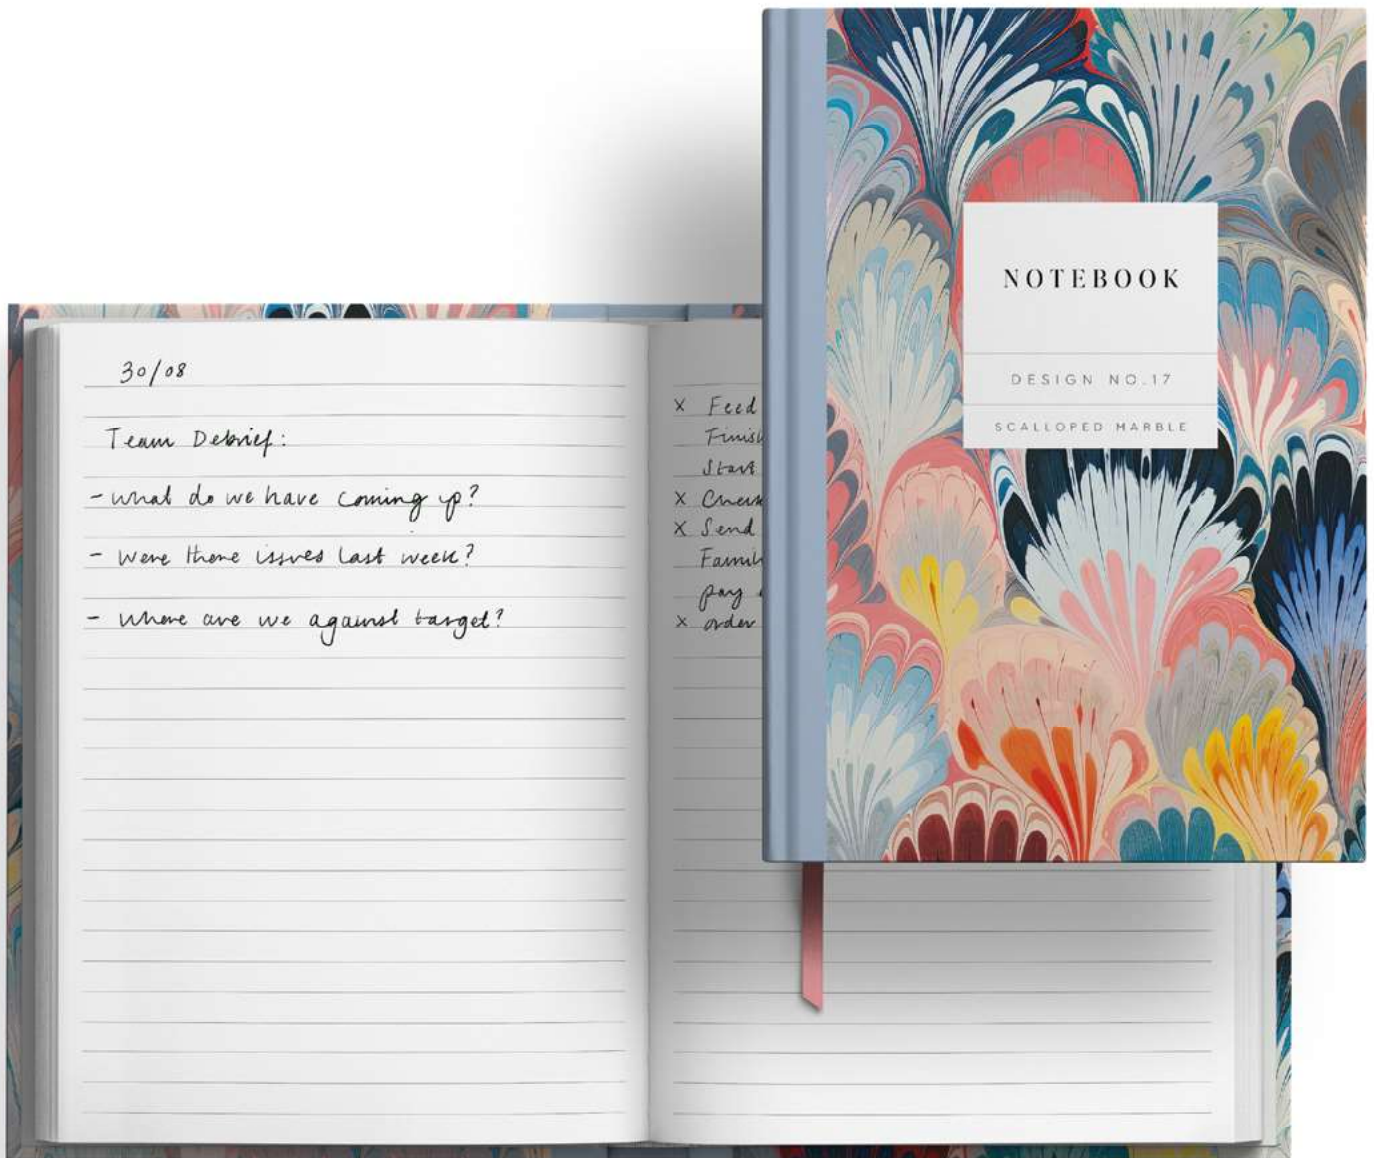 30/08
Team Debrief:
- what do we have coming up?
- were there issues last week?
- where are we against target?
x Feed
Finish
Start
x
x Send
pay
x order
NOTEBOOK
DESIGN NO.17
SCALLOPED MARBLE